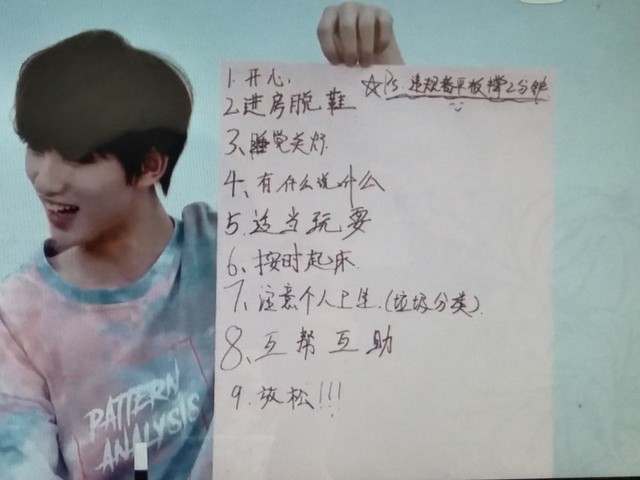 1. 开心.
☆Ps.违规者平板撑2分钟
2.进房脱鞋
3、睡觉关灯.
4、有什么说什么
5.适当玩耍
6、按时起床.
7、注意个人卫生.(垃圾分类).
8、互帮互助
9.放松!!!
PATTERN
ANALYSIS